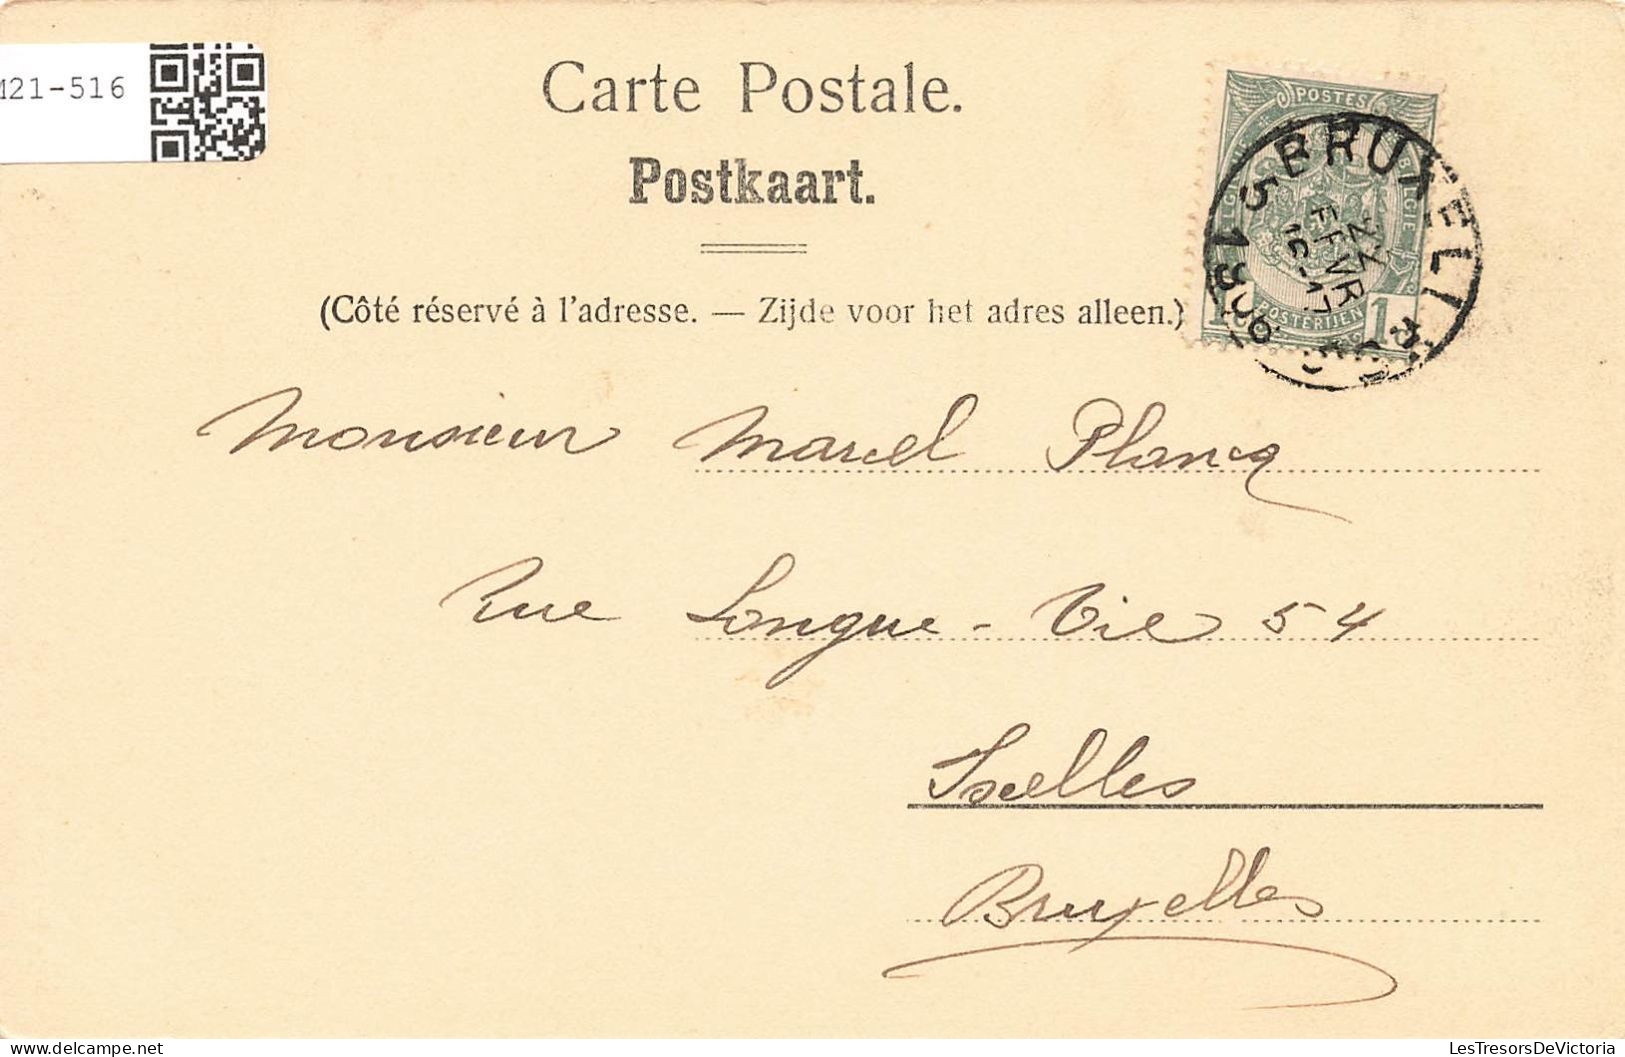 M21-516
Carte Postale.
Postkaart.
(Côté réservé à l'adresse. — Zijde voor het adres alleen.)
POSTES
BELGIQUE BELGIE
POSTERIJEN
1 1
BRUXELLES
5 1906
22
FEVR
16-17
Monsieur Marcel Plancq
Rue Longue - Vie 54
Ixelles
Bruxelles
LesTresorsDeVictoria